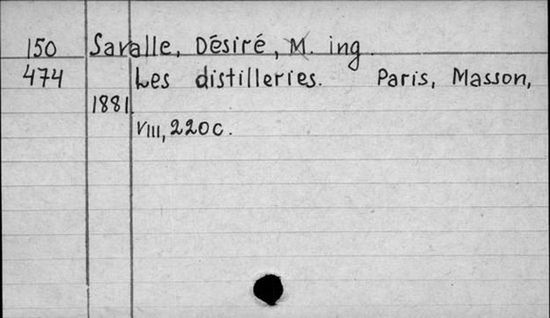 150 Savalle, Désiré, M. ing.
474 Les distilleries. Paris, Masson,
1881.
VIII, 220 c.